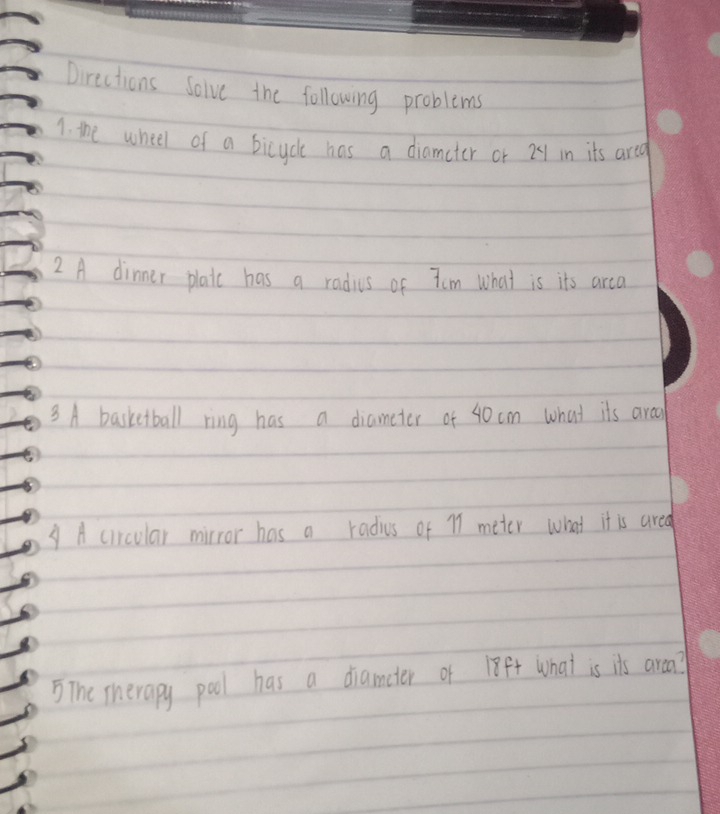 Directions Solve the following problems
1. the wheel of a bicycle has a diameter of 24 in its area
2 A dinner plate has a radius of 7cm what is its area
3 A basketball ring has a diameter of 40 cm what its area
4 A circular mirror has a radius of 11 meter what it is area
5 The therapy pool has a diameter of 18ft what is its area?